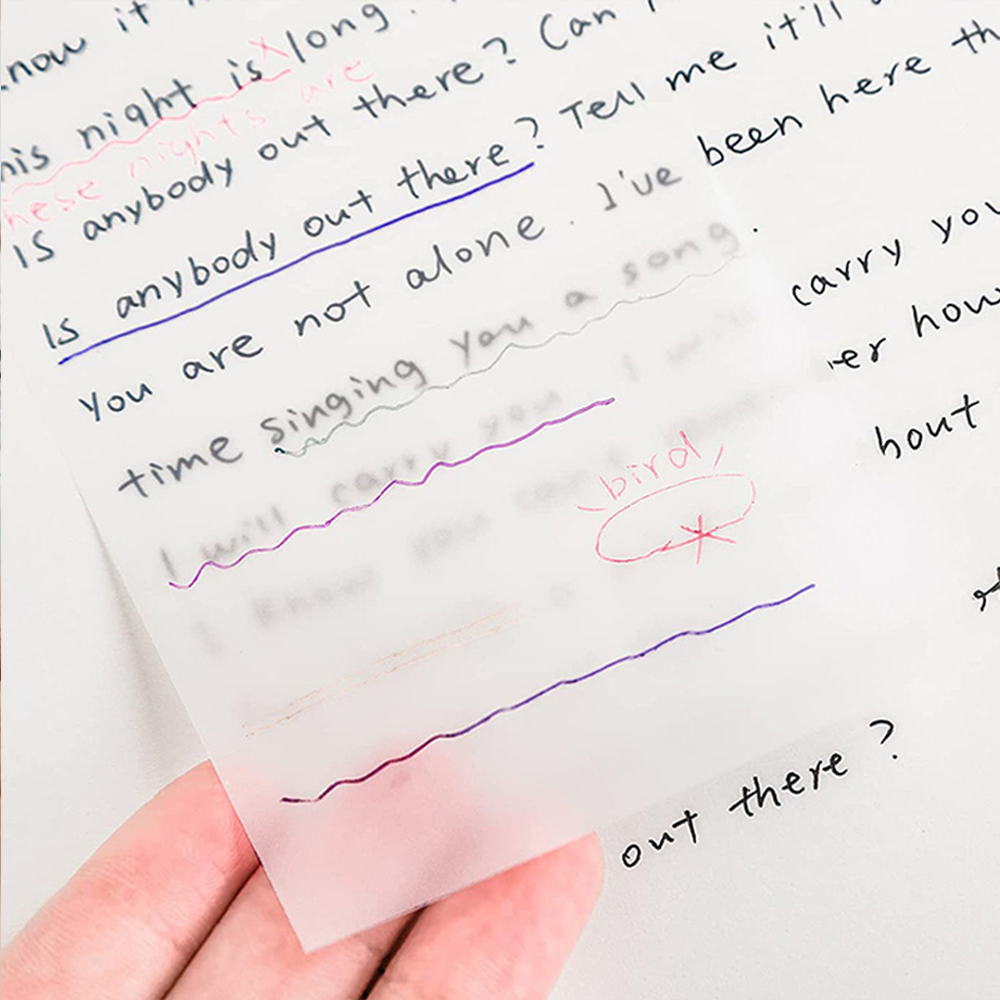 now it
this night is long.
these nights are
Is anybody out there? Can
Is anybody out there? Tell me it'll
You are not alone. I've been here th
time singing you a song.
I will carry you. I will carry you
I know you can't
er hou
bird
bout
out there?